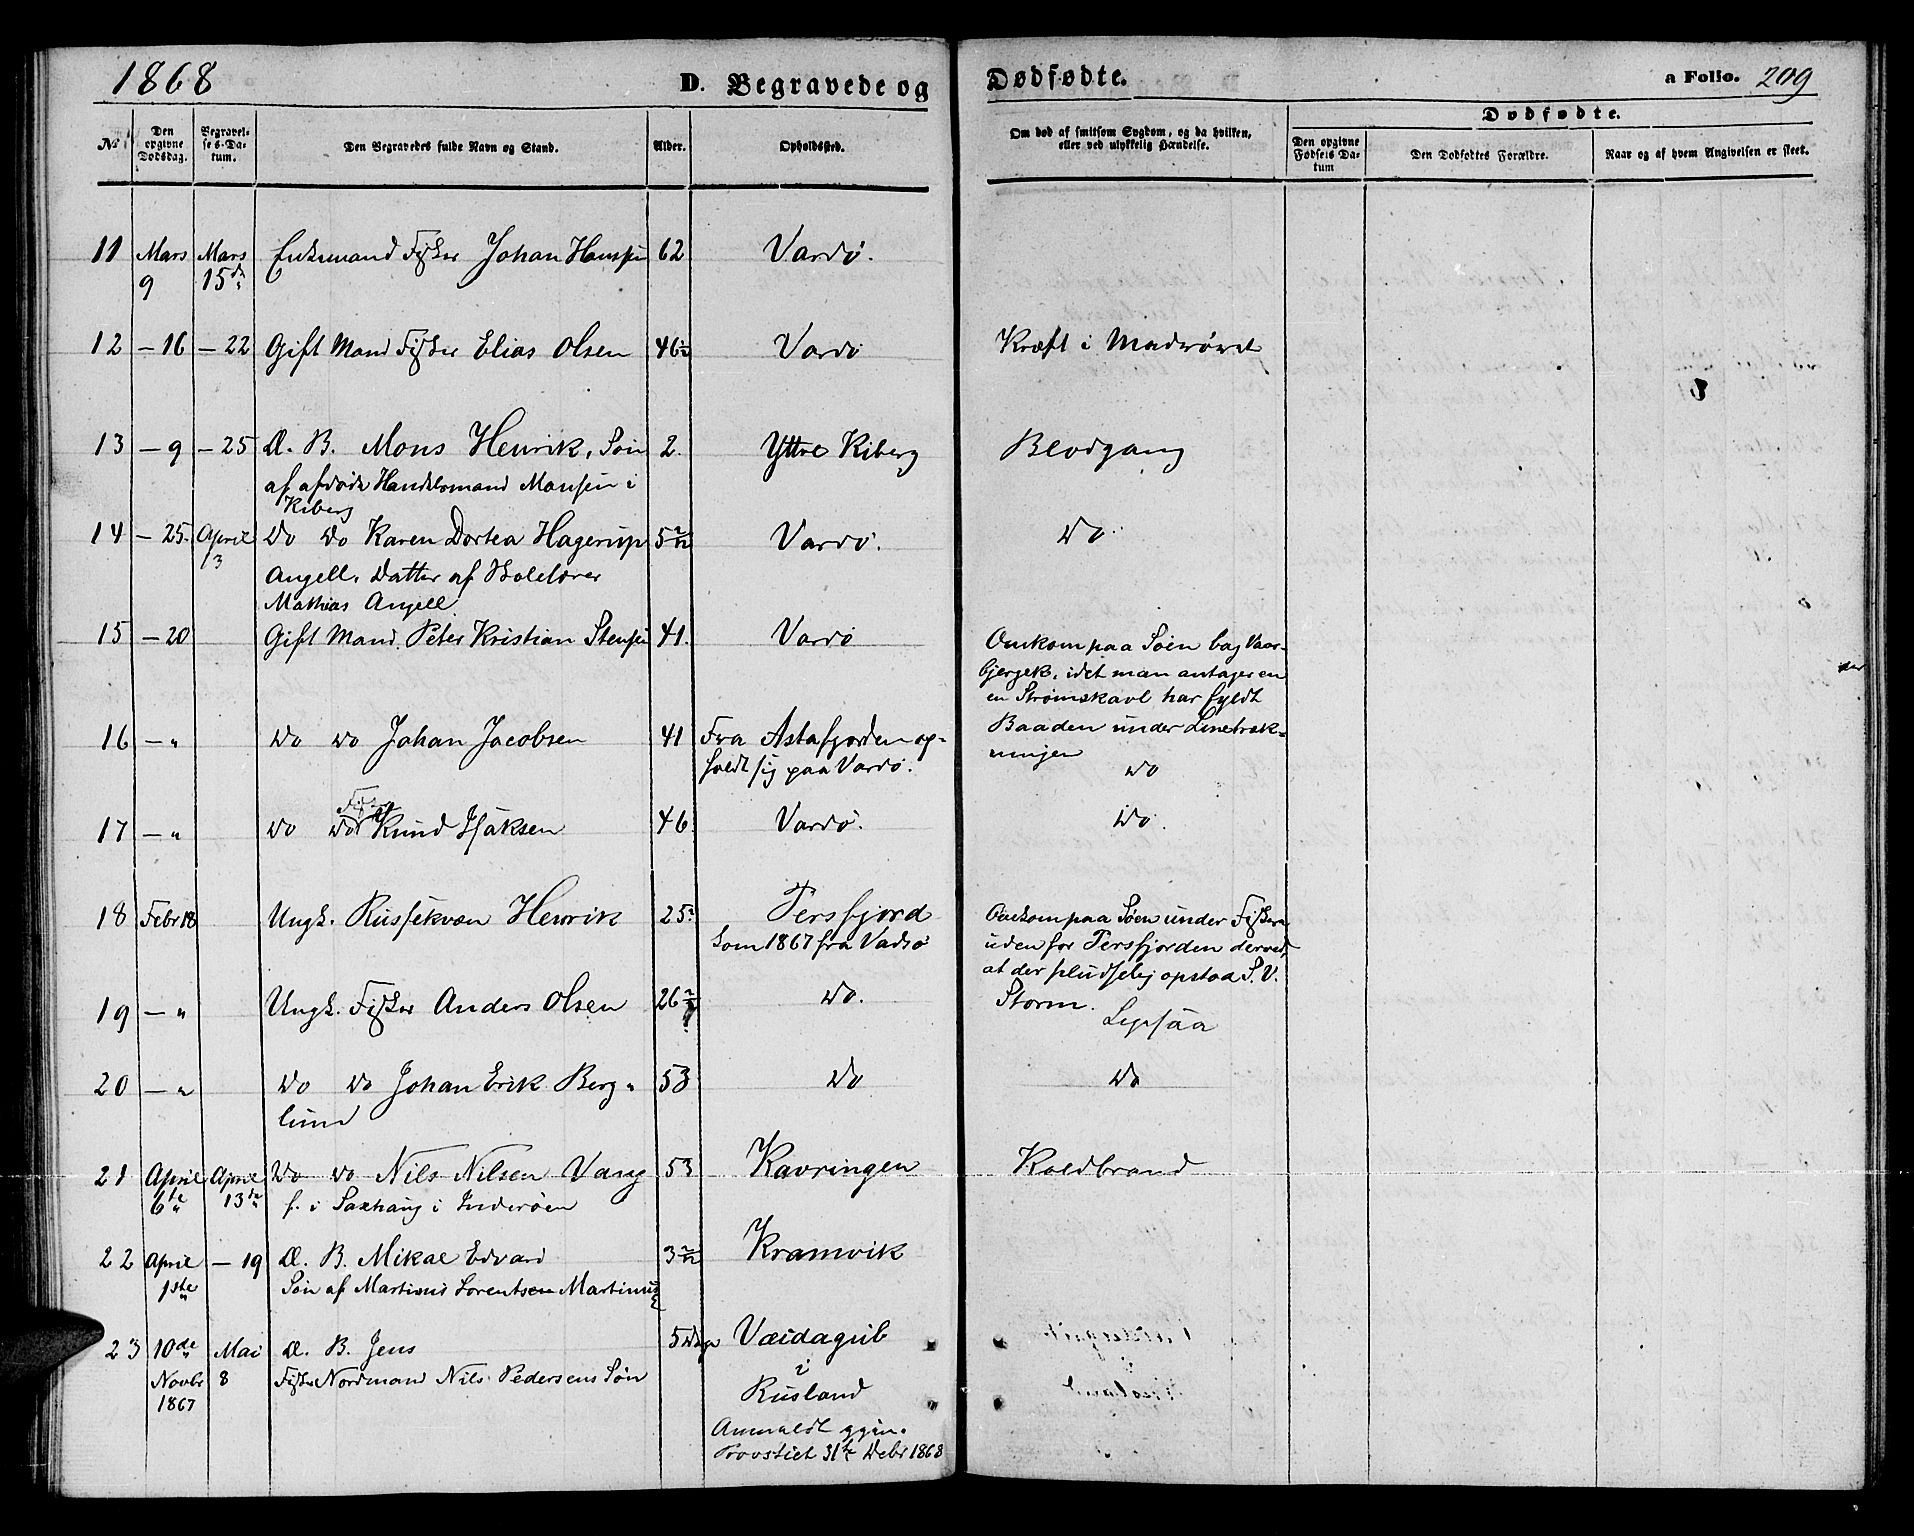 1868
D. Begravede og
Dødfødte.
a Folio. 209
No
Den opgivne Dødsdag.
Begravelses-Datum.
Den Begravedes fulde Navn og Stand.
Alder.
Opholdssted.
Om død af smitsom Sygdom, og da hvilken, eller ved ulykkelig Hændelse.
Dødfødte.
Den opgivne Fødsels Datum
Den Dødfødtes Forældre.
Naar og af hvem Angivelsen er skeet.
11 Mars 9 Mars 15de Enkemand Fisker Johan Hansen 62 Vardø.
12 – 16 – 22 Gift Mand Fisker Elias Olsen 46 Vardø Kræft i Madrøret
13 – 9 – 25 Æ. B. Mons Henrik, Søn 2. Yttre Kiberg Blodgang
af afdøde Handelsmand Monsen i
Kiberg
14 – 25. April 3 Do Do Karen Dortea Hagerup 5 Vardø. Do
Angell, Datter af Skolelærer
Mathias Angell
15 – 20 Gift Mand Peter Kristian Stensen 41. Vardø Omkom paa Søen bag Vaar-
bjerget, idet man antager en
en Strømskavl har fyldt
Baaden under Linetræk-
ningen
16 – " Do Do Johan Jacobsen 41 Fra Astafjorden op-
holdt sig paa Vardø. Do
17 – " Do Do Knud Isaksen 46. Vardø. Do.
18 Febr 18 Ungk. Russekvæn Henrik 25 Persfjord
kom 1867 fra Vadsø
Omkom paa Søen under Fisker
uden for Persfjorden derved,
at der pludselig opstod S.V.
Storm.
19 – " Ungk. Fisker Anders Olsen 26 Do.
Ligesaa
20 – " Do Do Johan Erik Berg- 53 Do Do
lund
21 April 6te April 13de Do Do Nils Nilsen Vang 53 Kavringen Koldbrand
f. i Saxhaug i Inderøen
22 April 1ste – 19 Æ. B. Mikal Edvard 3 Kramvik
Søn af Martinus Lorentsen Martinus
23 10de Novbr 1867 Mai 8 Æ. B. Jens 5 Dage Vaidagub
i
Rusland
Fisker Nordmand Nils Pedersens Søn
Anmeldt
Provstiet 31te Debr 1868